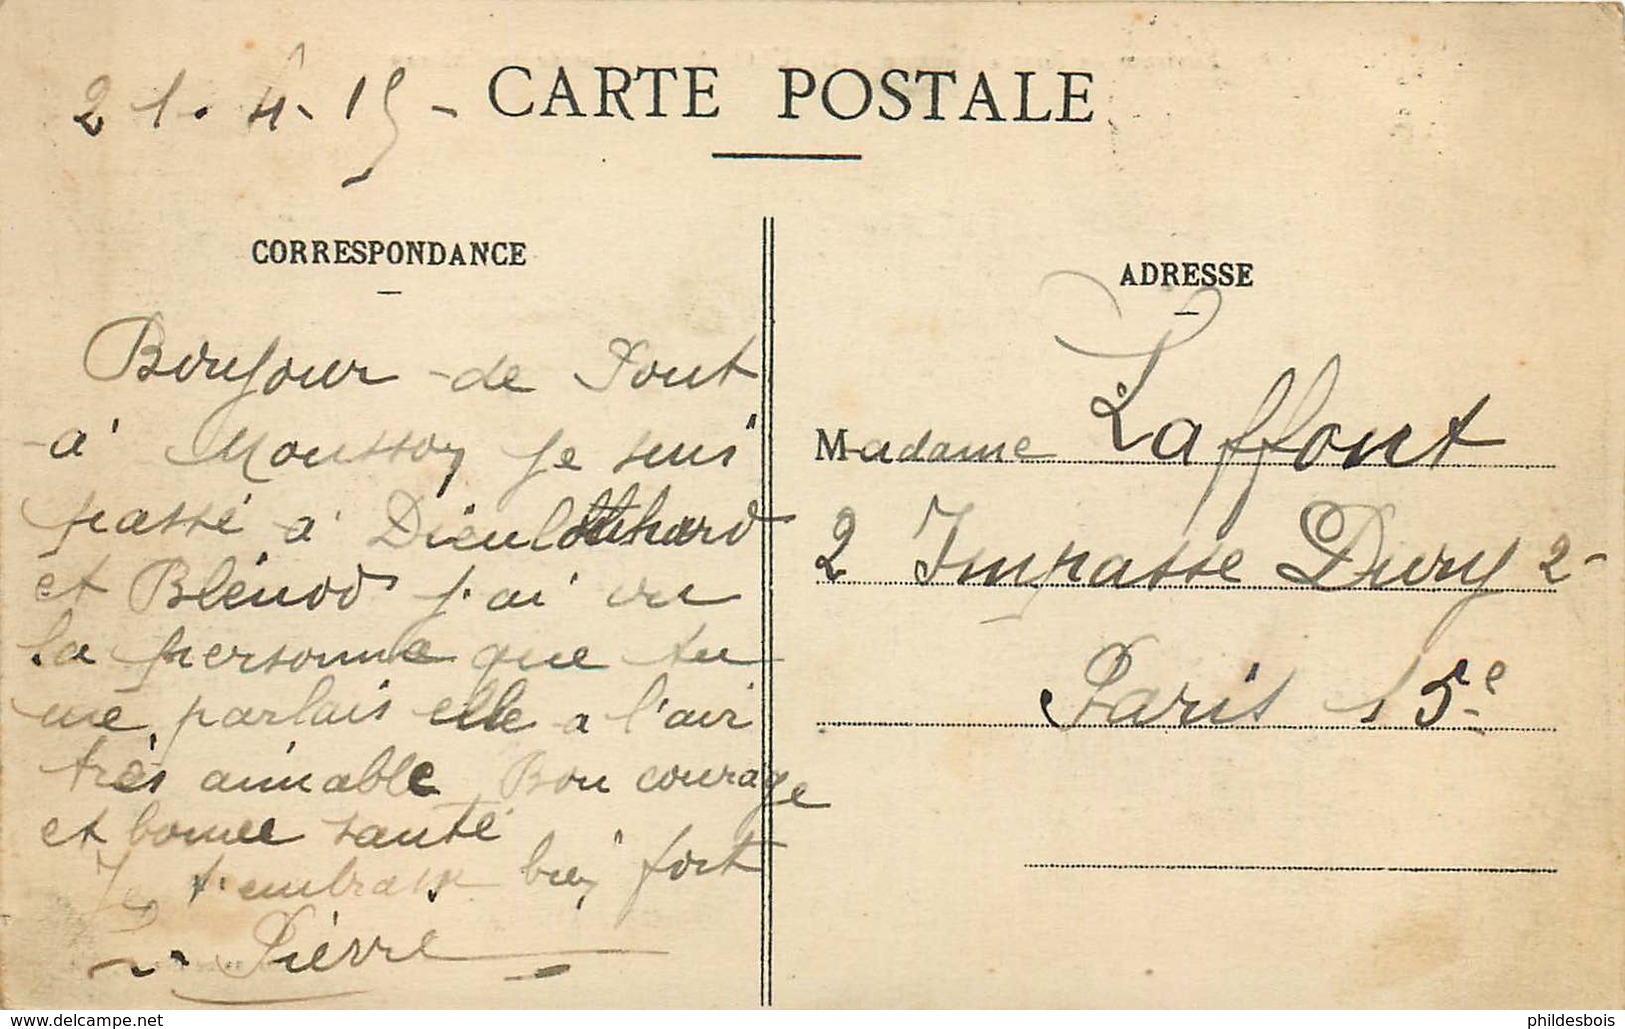 21.4.15 -
CARTE POSTALE
CORRESPONDANCE
Bonjour de Pont
à Mousson je suis
passé à Dieulouhard
et Blénod j'ai vu
la personne que tu
me parlais elle a l'air
très aimable Bon courage
et bonne santé
Je t'embrasse bien fort
Pierre
ADRESSE
Madame Laffont
2 Impasse Dury 2-
Paris 15e
delcampe.net website
phildesbois